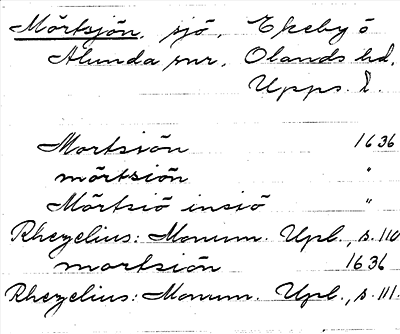 Mörtsjön, sjö, Ekeby ö
Alunda snr, Olands hd,
Upps. l.
Mortsiön 1636
mörtsiön "
Mörtsiö insiö "
Rhezelius: Monum. Upl., s. 110
mortsiön 1636
Rhezelius: Monum. Upl., s. 111.